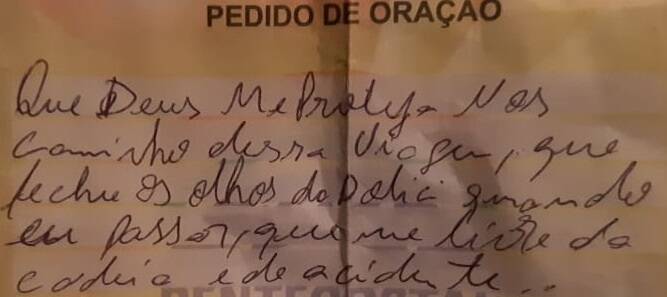 PEDIDO DE ORAÇÃO
Que Deus Me Proteja Nos
caminho dessa Viagem, que
feche os olhos da Polici quando
eu passar, que me livre da
cadeia e de acidente...
PENTECOSTAL